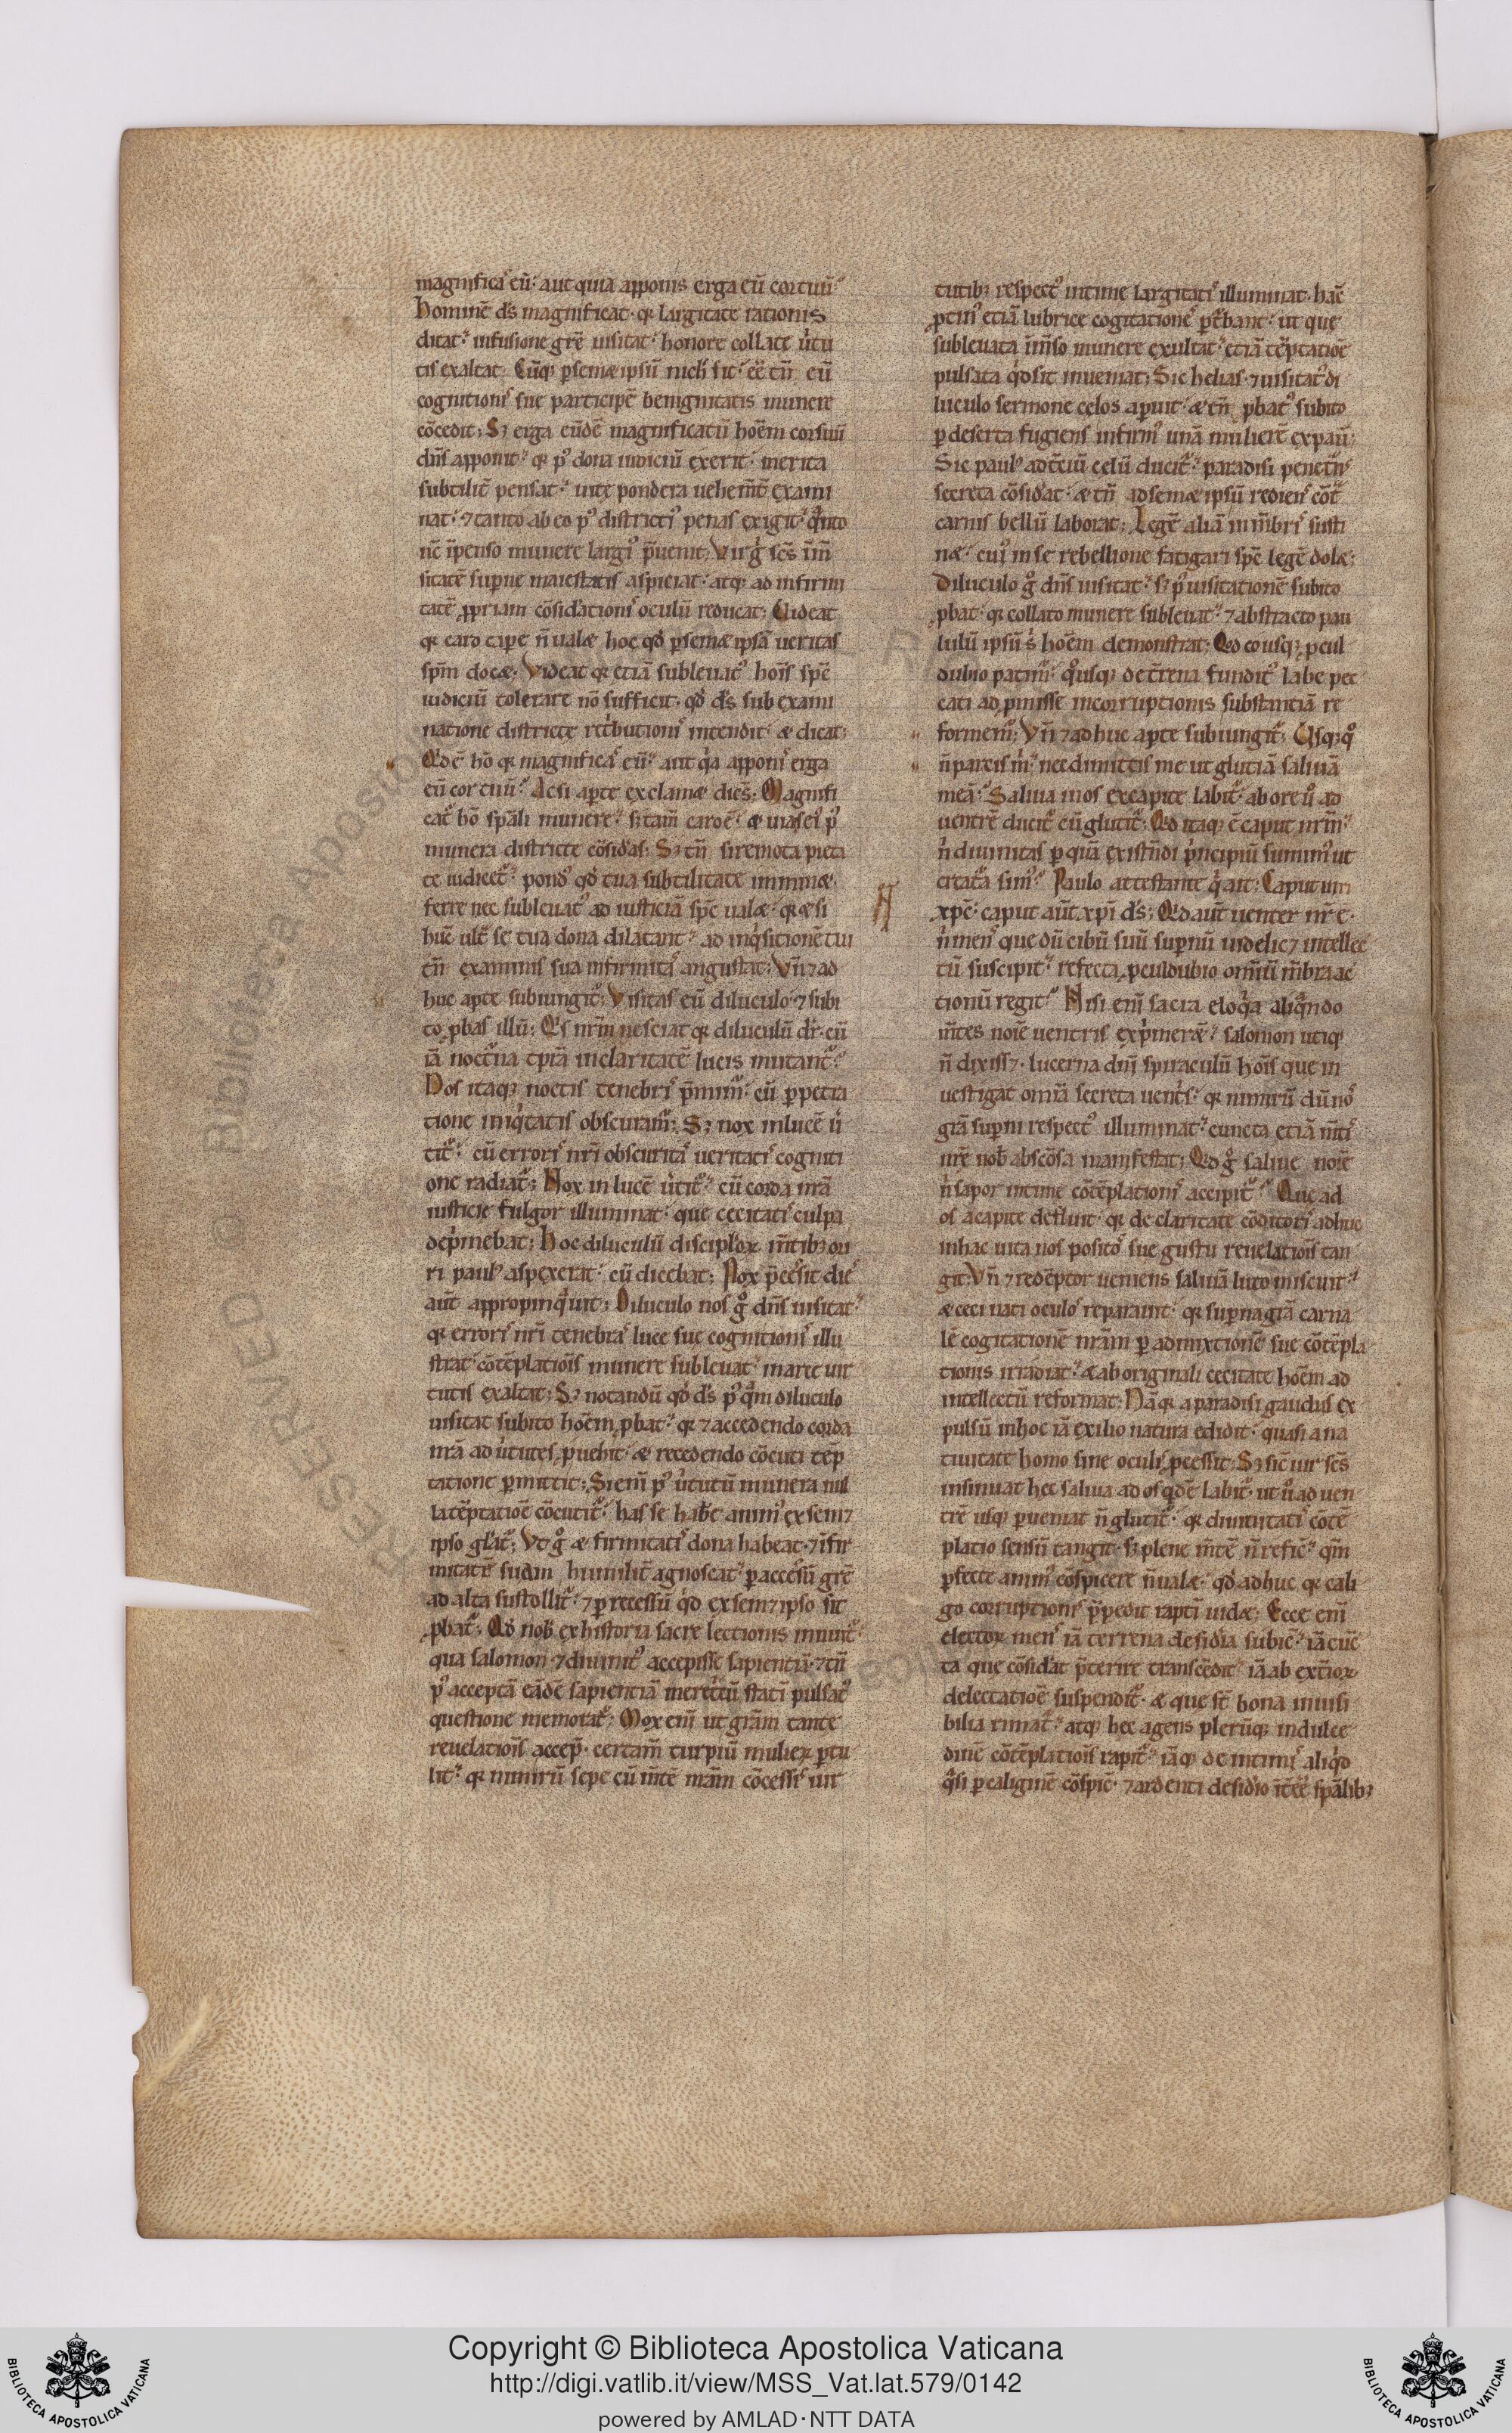 magnificaˢ eū· aut quia apponis erga eū cor tuū
hominē dˢ magnificat· qꝛ largitate rationis
ditat· infusione grē uisitat· honore collate ůtu
tis exaltat· Cūqꝫ ꝑ semæ ipsū nichˡ sit· eē tn̄ eū
cognitioniˢ sue participē benignitatis munere
cōcedit; Sꝫ erga eūdē magnificatū hoēm cor suū
dn̄s apponit· qꝛ pˀ dona iudiciū exerit· merita
subtilit̄ pensat· uite pondera uehem̄t̄ exami
nat· ⁊ tanto ab eo pˀ districtiˀ penas exigit· qͣnto
nē īpenso munere largiˀ p̄uenit; Vir gͥ sc̄s īm̄
sitatē superne maiestatis aspiciat· atqꝫ ad infirmi
tatē ꝓpriam cōsidationiˢ oculū reducat; Videat
qꝛ caro caꝑe n̄ ualæ hoc qd̵ ꝑ semæ ipsā ueritas
spm̄ docæ; Videat qꝛ etiā subleuatˀ hoīs spē
iudiciū tolerare nō sufficit· qd̵ dˢ sub exami
natione districte ret̄butioniˢ intendit· æ dicat;
Qͥd ē hō qꝛ magnificaˢ eū· aut qͥa apponiˢ erga
eū cor tuū· Ac si aꝑte exclamæ dicēs; Magnifi
catˀ hō spāli munere· sꝫ tam̄ caro ē· æ uias eiˀ pˀ
munera districte cōsidas; Sꝫ tn̄ si remota pieta
te iudicetˀ· pondˀ qd̵ tua subtilitate imminæ·
ferre nec subleuatˀ ad iusticiā spē ualæ· qꝛ æ si
hūc ult̄ se tua dona dilatant· ad inqͥsitionē tui
tn̄ examinis sua infirmitaˢ angustat; Vn̄ ⁊ ad
huc aꝑte subiungitˀ; Visitas eū diluculo ⁊ subi
to ꝓbas illū; Qͥs nr̄m nesciat qꝛ diluculū dr̄· cū
iā noct̄na tp̄ra in claritatē lucis mutantˀ
Nos itaqꝫ noctis tenebriˢ p̄mimˀ· cū ꝑpetra
tione iniqͥtatis obscuramˀ; Sꝫ nox in lucē ů
titˀ· cū erroriˢ nr̄i obscuritaˢ ueritatiˢ cogniti
one radiatˀ; Nox in lucē ůtitˀ· cū corda nr̄a
iusticie fulgor illuminat· que cecitatiˢ culpa
dep̄mebat; hoc diluculū disciplo᷑ꝛ m̄tibꝫ ori
ri paulˀ aspexerat· cū dicebat; Nox p̄cesit dieˢ
aut̄ appropinqͣuit; Diluculo nos gͦ dn̄s uisitat·
qꝛ erroriˢ nr̄i tenebraˢ luce sue cognitioniˢ illu
strat· cōtēplatiois munere subleuat· in arce uir
tutis exaltat; Sꝫ notandū qd̵ dˢ pˀ qͣm diluculo
uisitat subito hoēm ꝓbat· qꝛ ⁊ accedendo corda
nr̄a ad ůtutes ꝓuehit· æ recedendo cōcuti tēp
tatione ꝑmittit; Si eni̅ pˀ ůtutū munera nul
la tēptatioē cōcutitˀ· has se habere animˀ ex sem⁊
ipso gl̄atˀ; Vt gͦ æ firmitatiˢ dona habeat· ⁊ ifir
mitatē suam humilit̄ agnoscat· ꝑ accesū grē
ad alta sustollitˀ· ⁊ ꝑ recessū qͥd ex sem⁊ipso sit
ꝓbatˀ; Qd̵ nob̄ ex historia sacre lectionis inuitˀ·
qua salomon ⁊ diuinitˀ accepisse sapientiā· ⁊ tn̄
pˀ acceptā eādē sapientiā meret̄cū statī pulsatˀ
questione memoratˀ; Mox eni̅ ut gr̄am tante
reuelatiois accep̄· certam̄ turpiū mulieꝝ ꝑtu
lit· qꝛ nimirū sepe cū m̄tē nr̄am cōcessiˢ uir
tutibꝫ respectˀ intime largitatiˢ illuminat· hāc
ꝓtinˀ etiā lubrice cogitationeˢ ꝑt̄bant· ut que
subleuata īm̄so munere exultat· etiā tēptatioē
pulsata qͥd sit inueniat; Sic helias ⁊ uisitatˀ di
luculo sermone celos aꝑuit· æ tn̄ ꝓbatˀ subito
ꝑ deserta fugiens infirmˀ unā mulierē expaū;
Sic paulˀ ad t̄ciū celū ducitˀ· paradisi penet̄nˢ
secreta cōsidat· æ tn̄ ad semæ ipsū redienˢ cōt̄
carnis bellū laborat; Legē aliā in m̄briˢ susti
næ· cuiˀ in se rebellione fatigari spē legē dolæ;
Diluculo gͦ dn̄s uisitat· sꝫ pˀ uisitationē subito
ꝓbat· qꝛ collato munere subleuat· ⁊ abstracto pau
lulū ipsū sͥ hoēm demonstrat; Qd̵ eo usqꝫ ꝓcul
dubio patimˀ· qͦusqꝫ det̄rena fūditˀ labe pec
cati ad ꝓmisse incorruptionis substantiā re
formemˀ; Vn̄ ⁊ adhuc aꝑte subiungitˀ; Vsqꝫqͦ
n̄ parcis mͥ· nec dimittis me ut glutiā saliuā
meā· Saliua in os ex capite labitˀ· ab ore ů ad
uentrē ducitˀ cū glutitˀ; Qd̵ itaqꝫ ē caput nr̄m·
nͥ diuinitas ꝑ quā existn̄di p̄ncipiū sumimˀ ut
creat̄a simˀ· Paulo attestante qͥ ait; Caput uiri
xp̄c· caput aut̄ xp̄i dˢ; Qd̵ aut̄ uenter nr̄ ē·
nͥ menˢ que dū cibū suū suꝑnū uidelic⁊ intellec
tū suscipit· refecta ꝓculdubio omiū m̄bra ac
tionū regit· Nisi eni̅ sacra eloqͥa aliqͣndo
m̄tes noīe uentris exp̄meræ· salomon utiqꝫ
n̄ dixiss⁊· lucerna dn̄i spiraculū hoīs que in
uestigat omīa secreta uent̄s· qꝛ nimirū dū noˢ
gr̄a suꝑni respectˀ illuminat· cuncta etiā m̄tiˢ
nr̄e nob̄ abscōsa manifestat; Qd̵ gͦ saliue noīe
nͥ sapor intime cōtēplationiˢ accipitˀ· Que ad
os a capite defluit· qꝛ de claritate cōditoriˢ adhuc
in hac uita nos positoˢ sue gustu reuelatiois tan
git; Vn̄ ⁊ redēptor ueniens saliuā luto miscuit·
æ ceci nati oculoˢ reparauit· qꝛ suꝑna gr̄a carna
lē cogitationē nr̄am ꝑ admixtionē sue cōtēpla
tionis irradiat· æ ab originali cecitate hoēm ad
intellectū reformat; Nā qꝛ a paradisi gaudiis ex
pulsū in hoc iā exilio natura edidit· quasi a na
tiuitate homo sine oculis ꝓcessit; Sꝫ sic̄ uir sc̄s
insinuat hec saliua ad os qͥdē labitˀ· ut ů ad uen
trē usqꝫ ꝑueniat n̄ glutitˀ· qꝛ diuinitatiˢ cōtē
platio sensū tangit· sꝫ plene m̄tē n̄ refic̄· qm̄
ꝑfecte animˀ cōspicere n̄ ualæ· qd̵ adhuc qꝛ cali
go corruptioniˢ p̄pedit raptī uidæ; Ecce eni̅
electoꝝ menˢ iā terrena desid̄ia subic̄· iā cūc
ta que cōsidat p̄terire transcēdit· iā ab ext̄ioꝝ
delectatioē suspenditˀ· æ que st̄ bona inuisi
bilia rimatˀ· atqꝫ hec agens plerūqꝫ in dulce
dinē cōtēplatiois rapitˀ· iāqꝫ de intimiˢ aliqͥd
qͣsi ꝑ caliginē cōspic̄· ⁊ ardenti desid̄io int̄eē spāli̅bꝫ
Copyright © Biblioteca Apostolica Vaticana
http://digi.vatlib.it/view/MSS_Vat.lat.579/0142
powered by AMLAD · NTT DATA
BIBLIOTECA APOSTOLICA VATICANA
BIBLIOTECA APOSTOLICA VATICANA